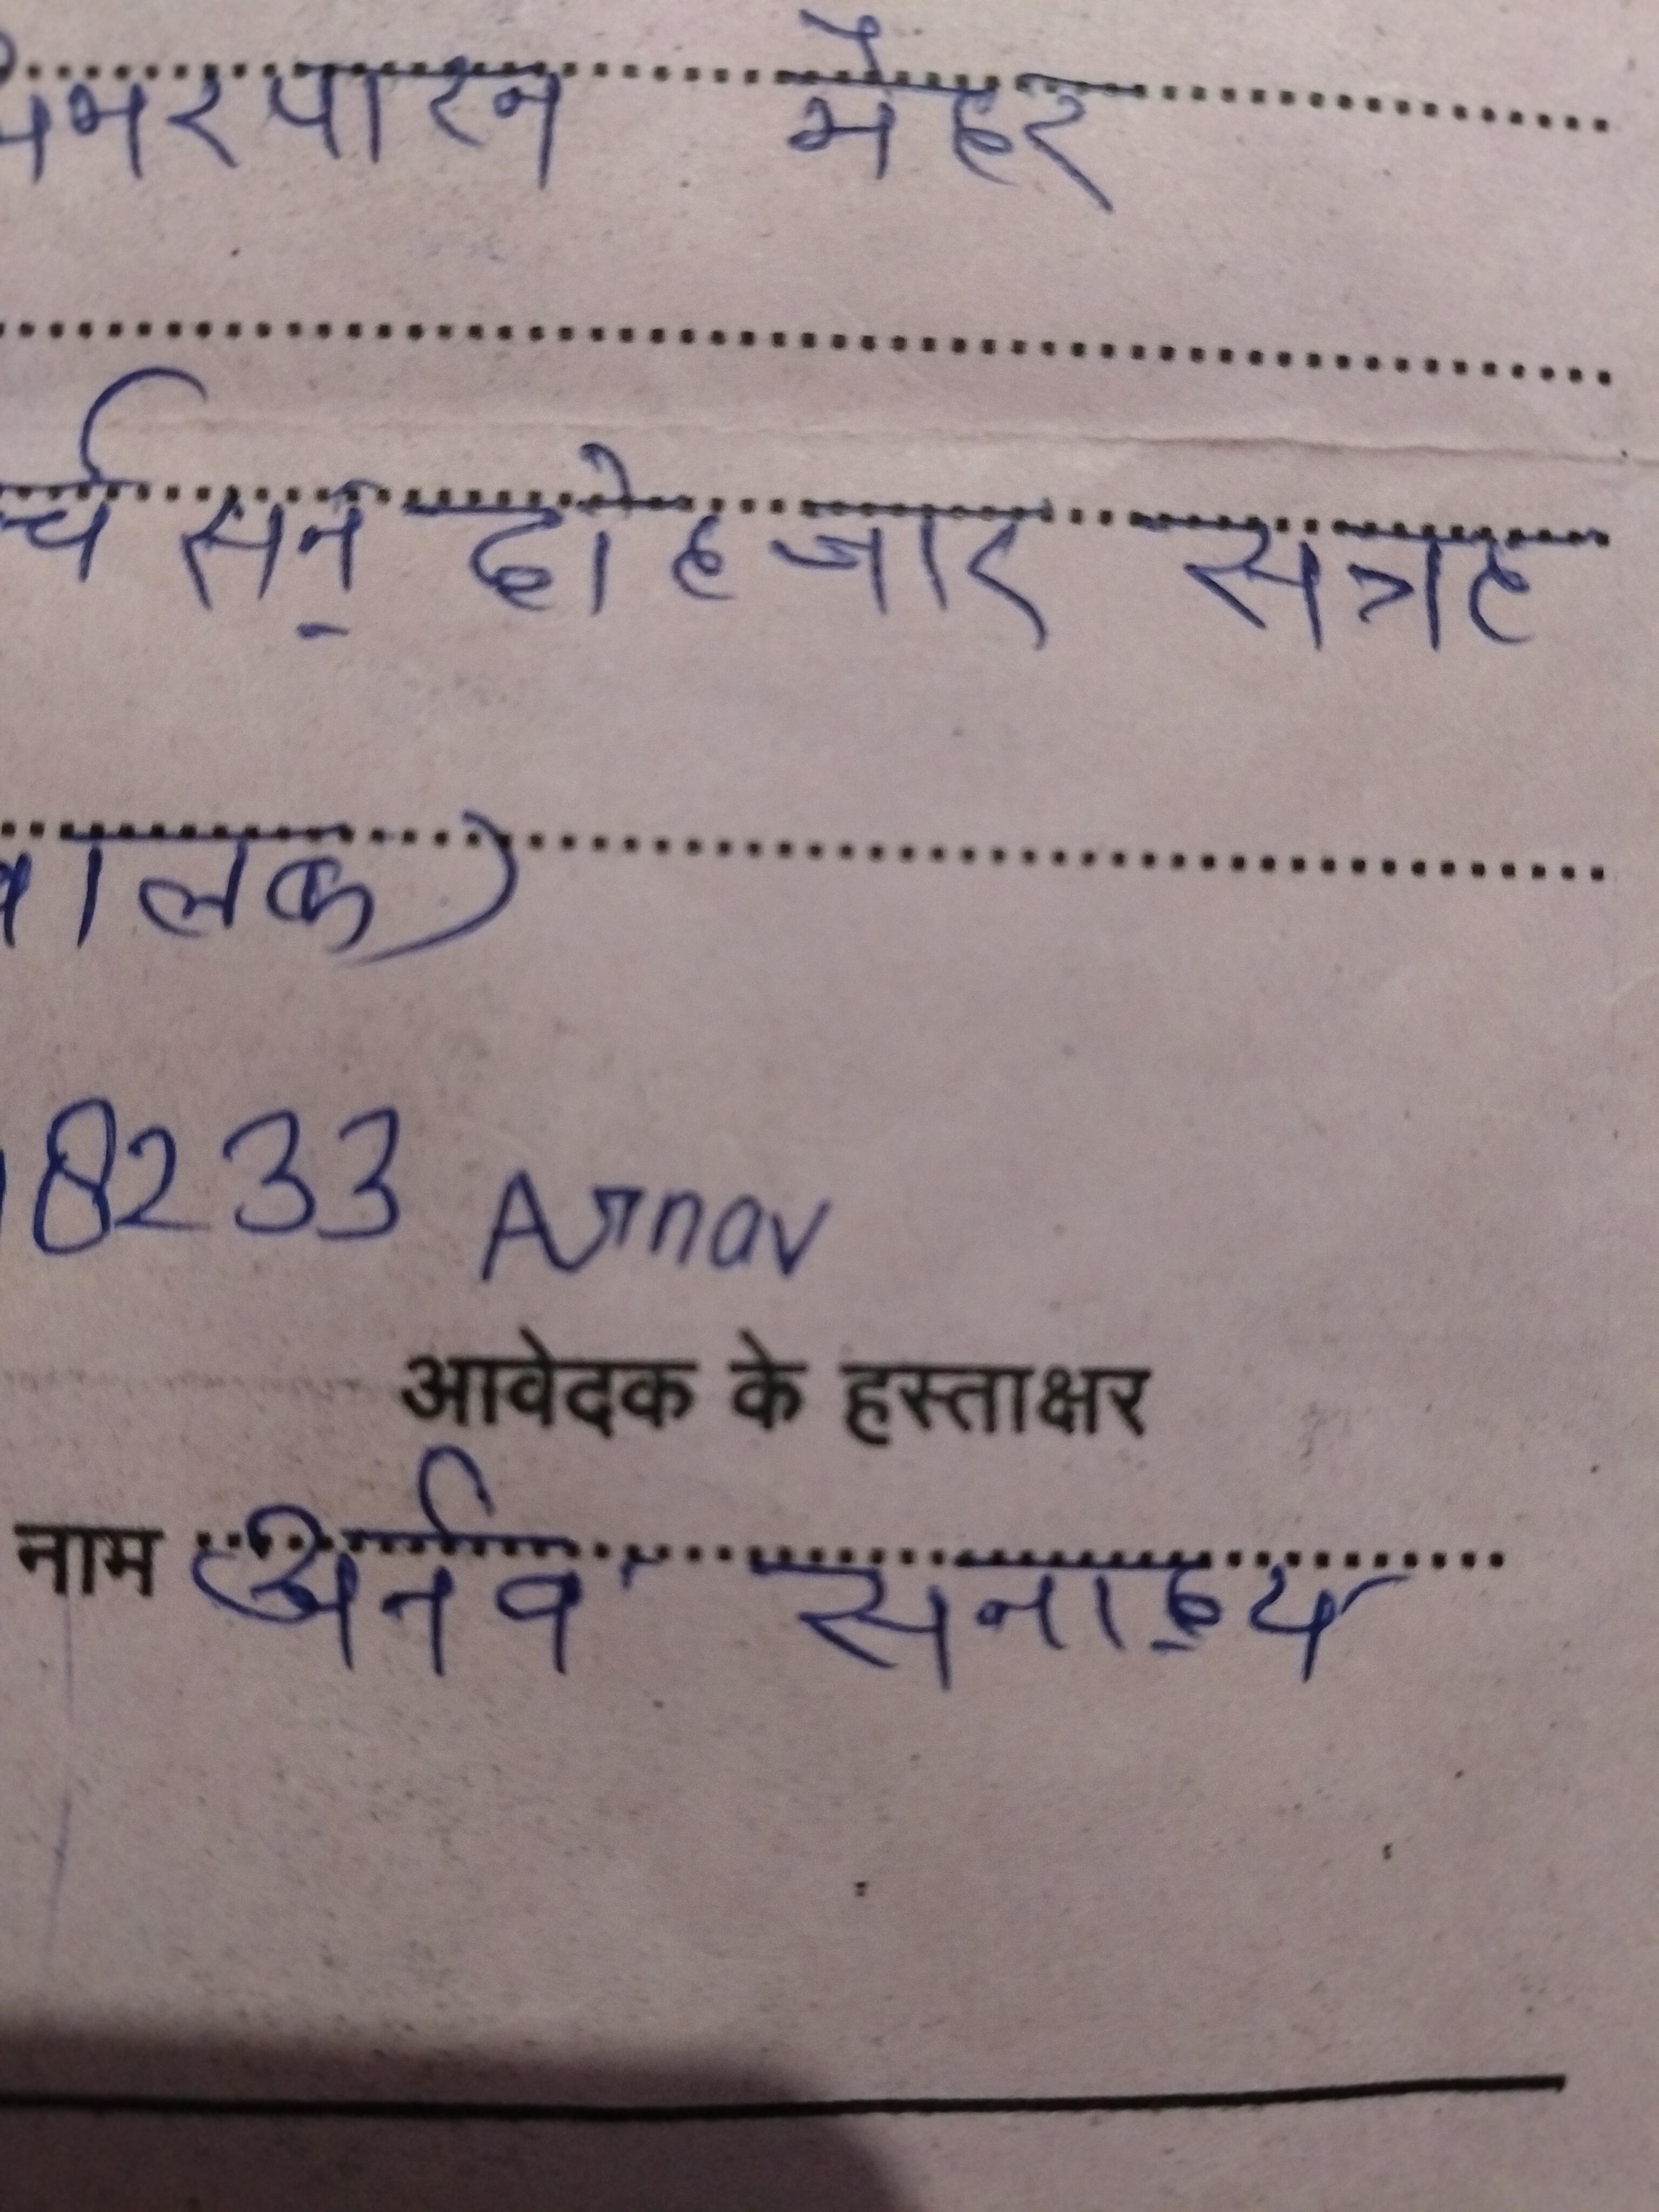 मैहर
र्च सन् दो हजार सत्रह
बालक)
8233 Arnav
आवेदक के हस्ताक्षर
नाम अर्नव सनाढ्य